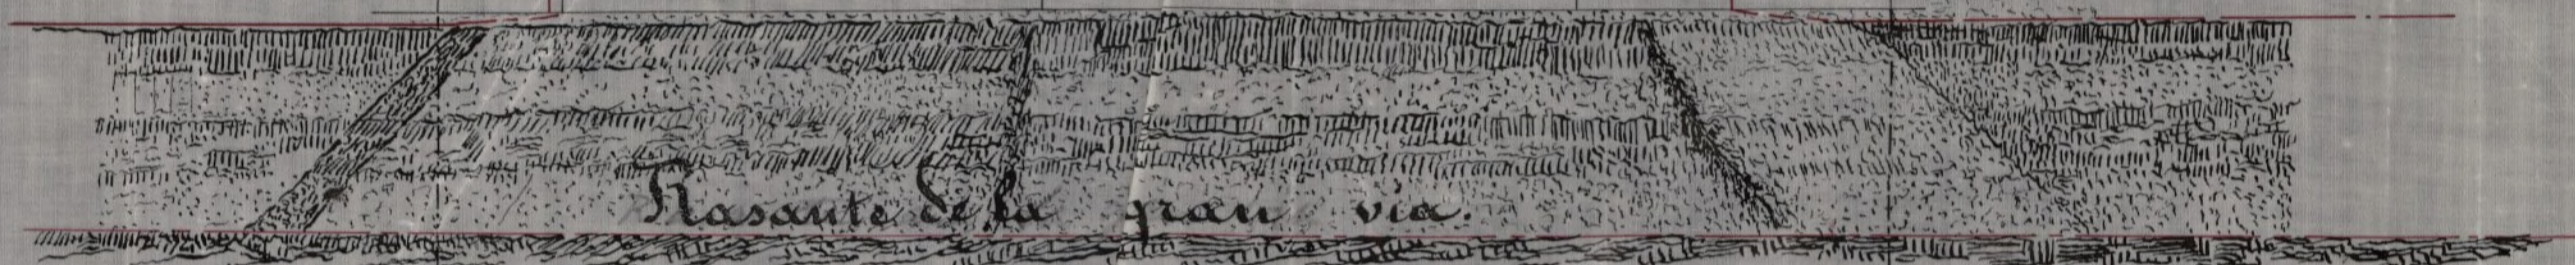 Rasante de la gran via.